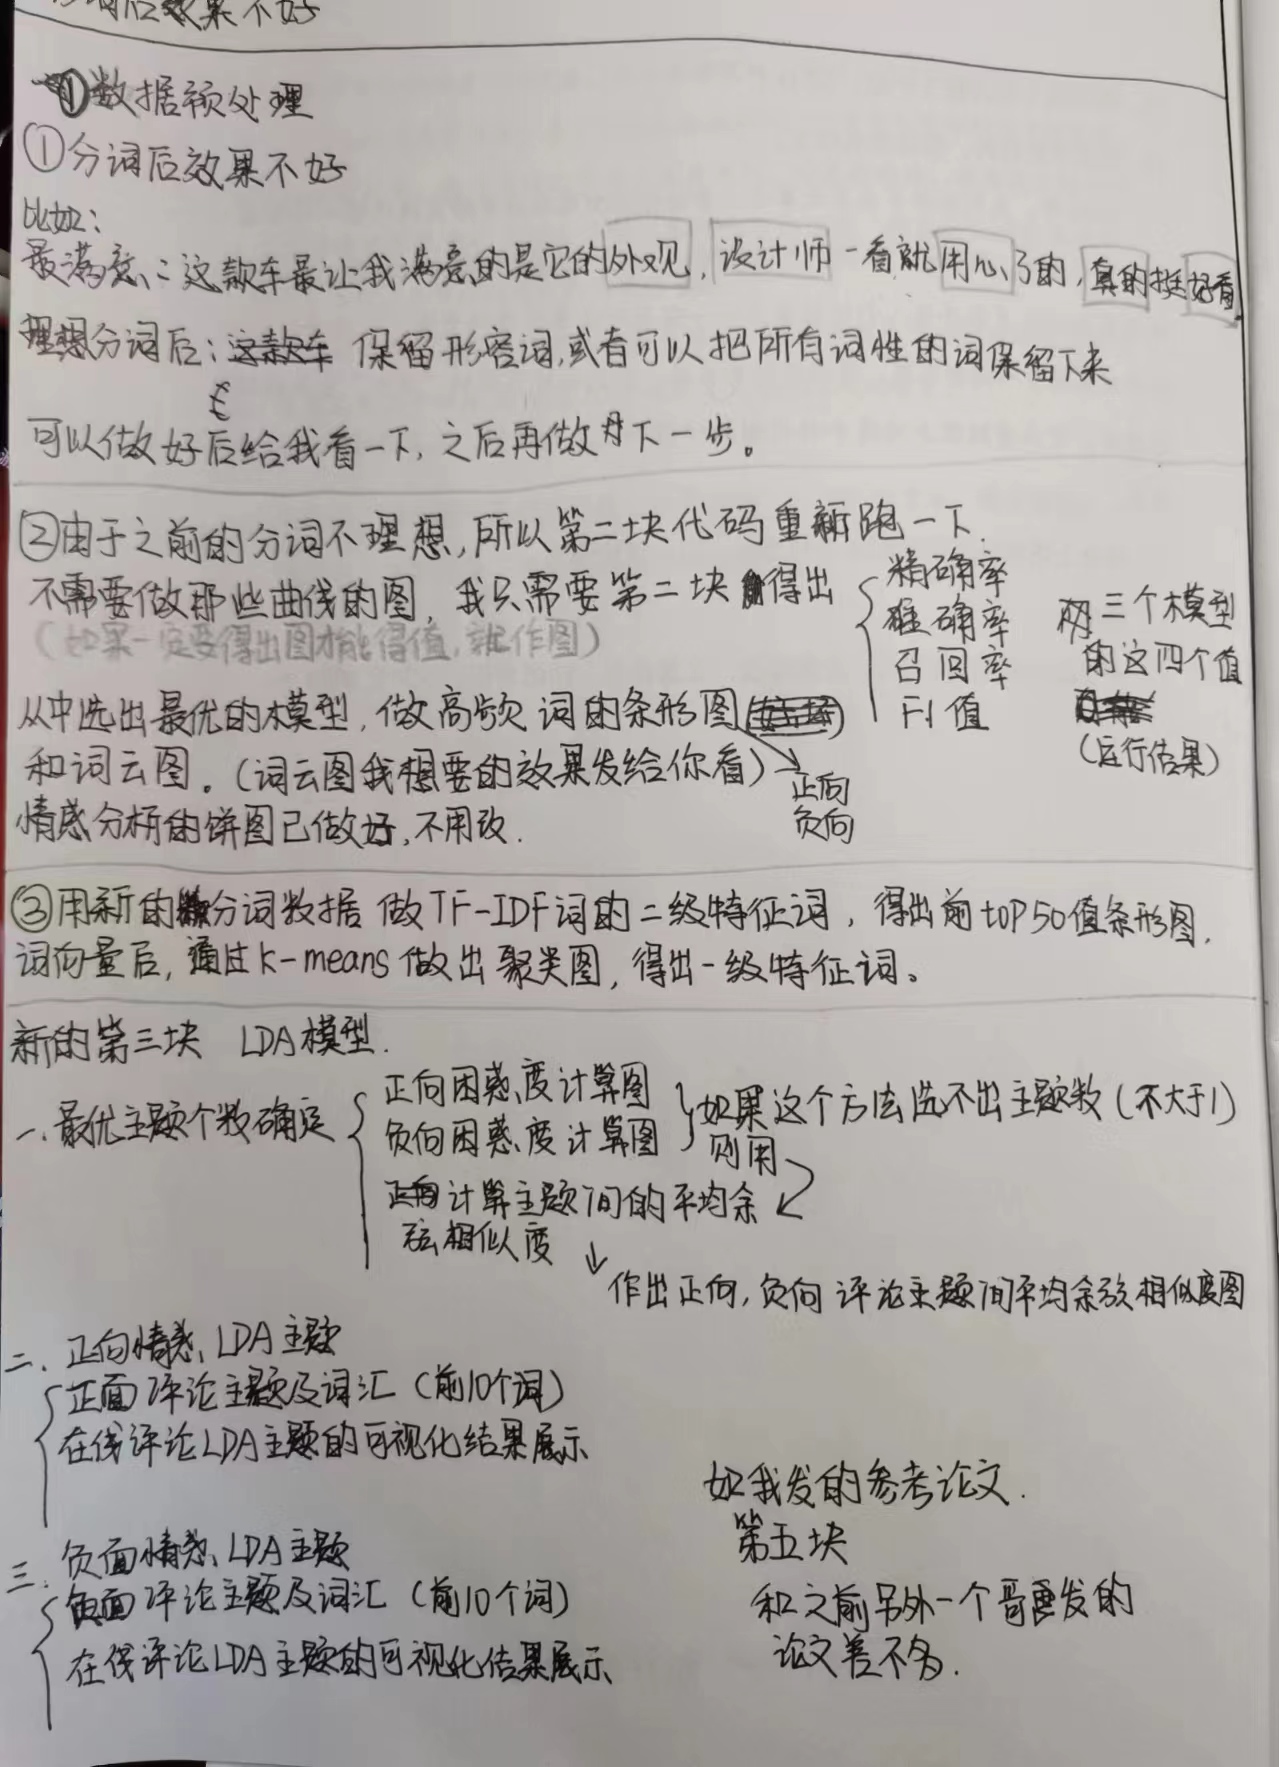 词后效果不好
①数据预处理
①分词后效果不好
比如：
最满意：这款车最让我满意的是它的外观，设计师一看就用心了的，真的挺好看。
理想分词后：这款车 保留形容词，或者可以把所有词性的词保留下来
可以做好后给我看一下，之后再做下一步。
②由于之前的分词不理想，所以第二块代码重新跑一下.
不需要做那些曲线的图，我只需要第二块得出
（如果一定要得出图才能得值，就作图）
精确率
准确率
召回率
F1值
三个模型
的这四个值
（运行结果）
从中选出最优的模型，做高频词的条形图
和词云图。（词云图我想要的效果发给你看）
正向
负向
情感分析的饼图已做好，不用改.
③用新的分词数据 做TF-IDF词的二级特征词，得出前top50值条形图，
词向量后，通过k-means做出聚类图，得出一级特征词。
新的第三块 LDA模型.
一、最优主题个数确定
正向困惑度计算图
负向困惑度计算图
如果这个方法选不出主题数（不大于1）
则用
计算主题间的平均余
弦相似度
作出正向，负向评论主题间平均余弦相似度图
二、正向情感LDA主题
正面评论主题及词汇（前10个词）
在线评论LDA主题的可视化结果展示
三、负面情感LDA主题
负面评论主题及词汇（前10个词）
在线评论LDA主题的可视化结果展示
如我发的参考论文.
第五块
和之前另外一个哥发的
论文差不多.